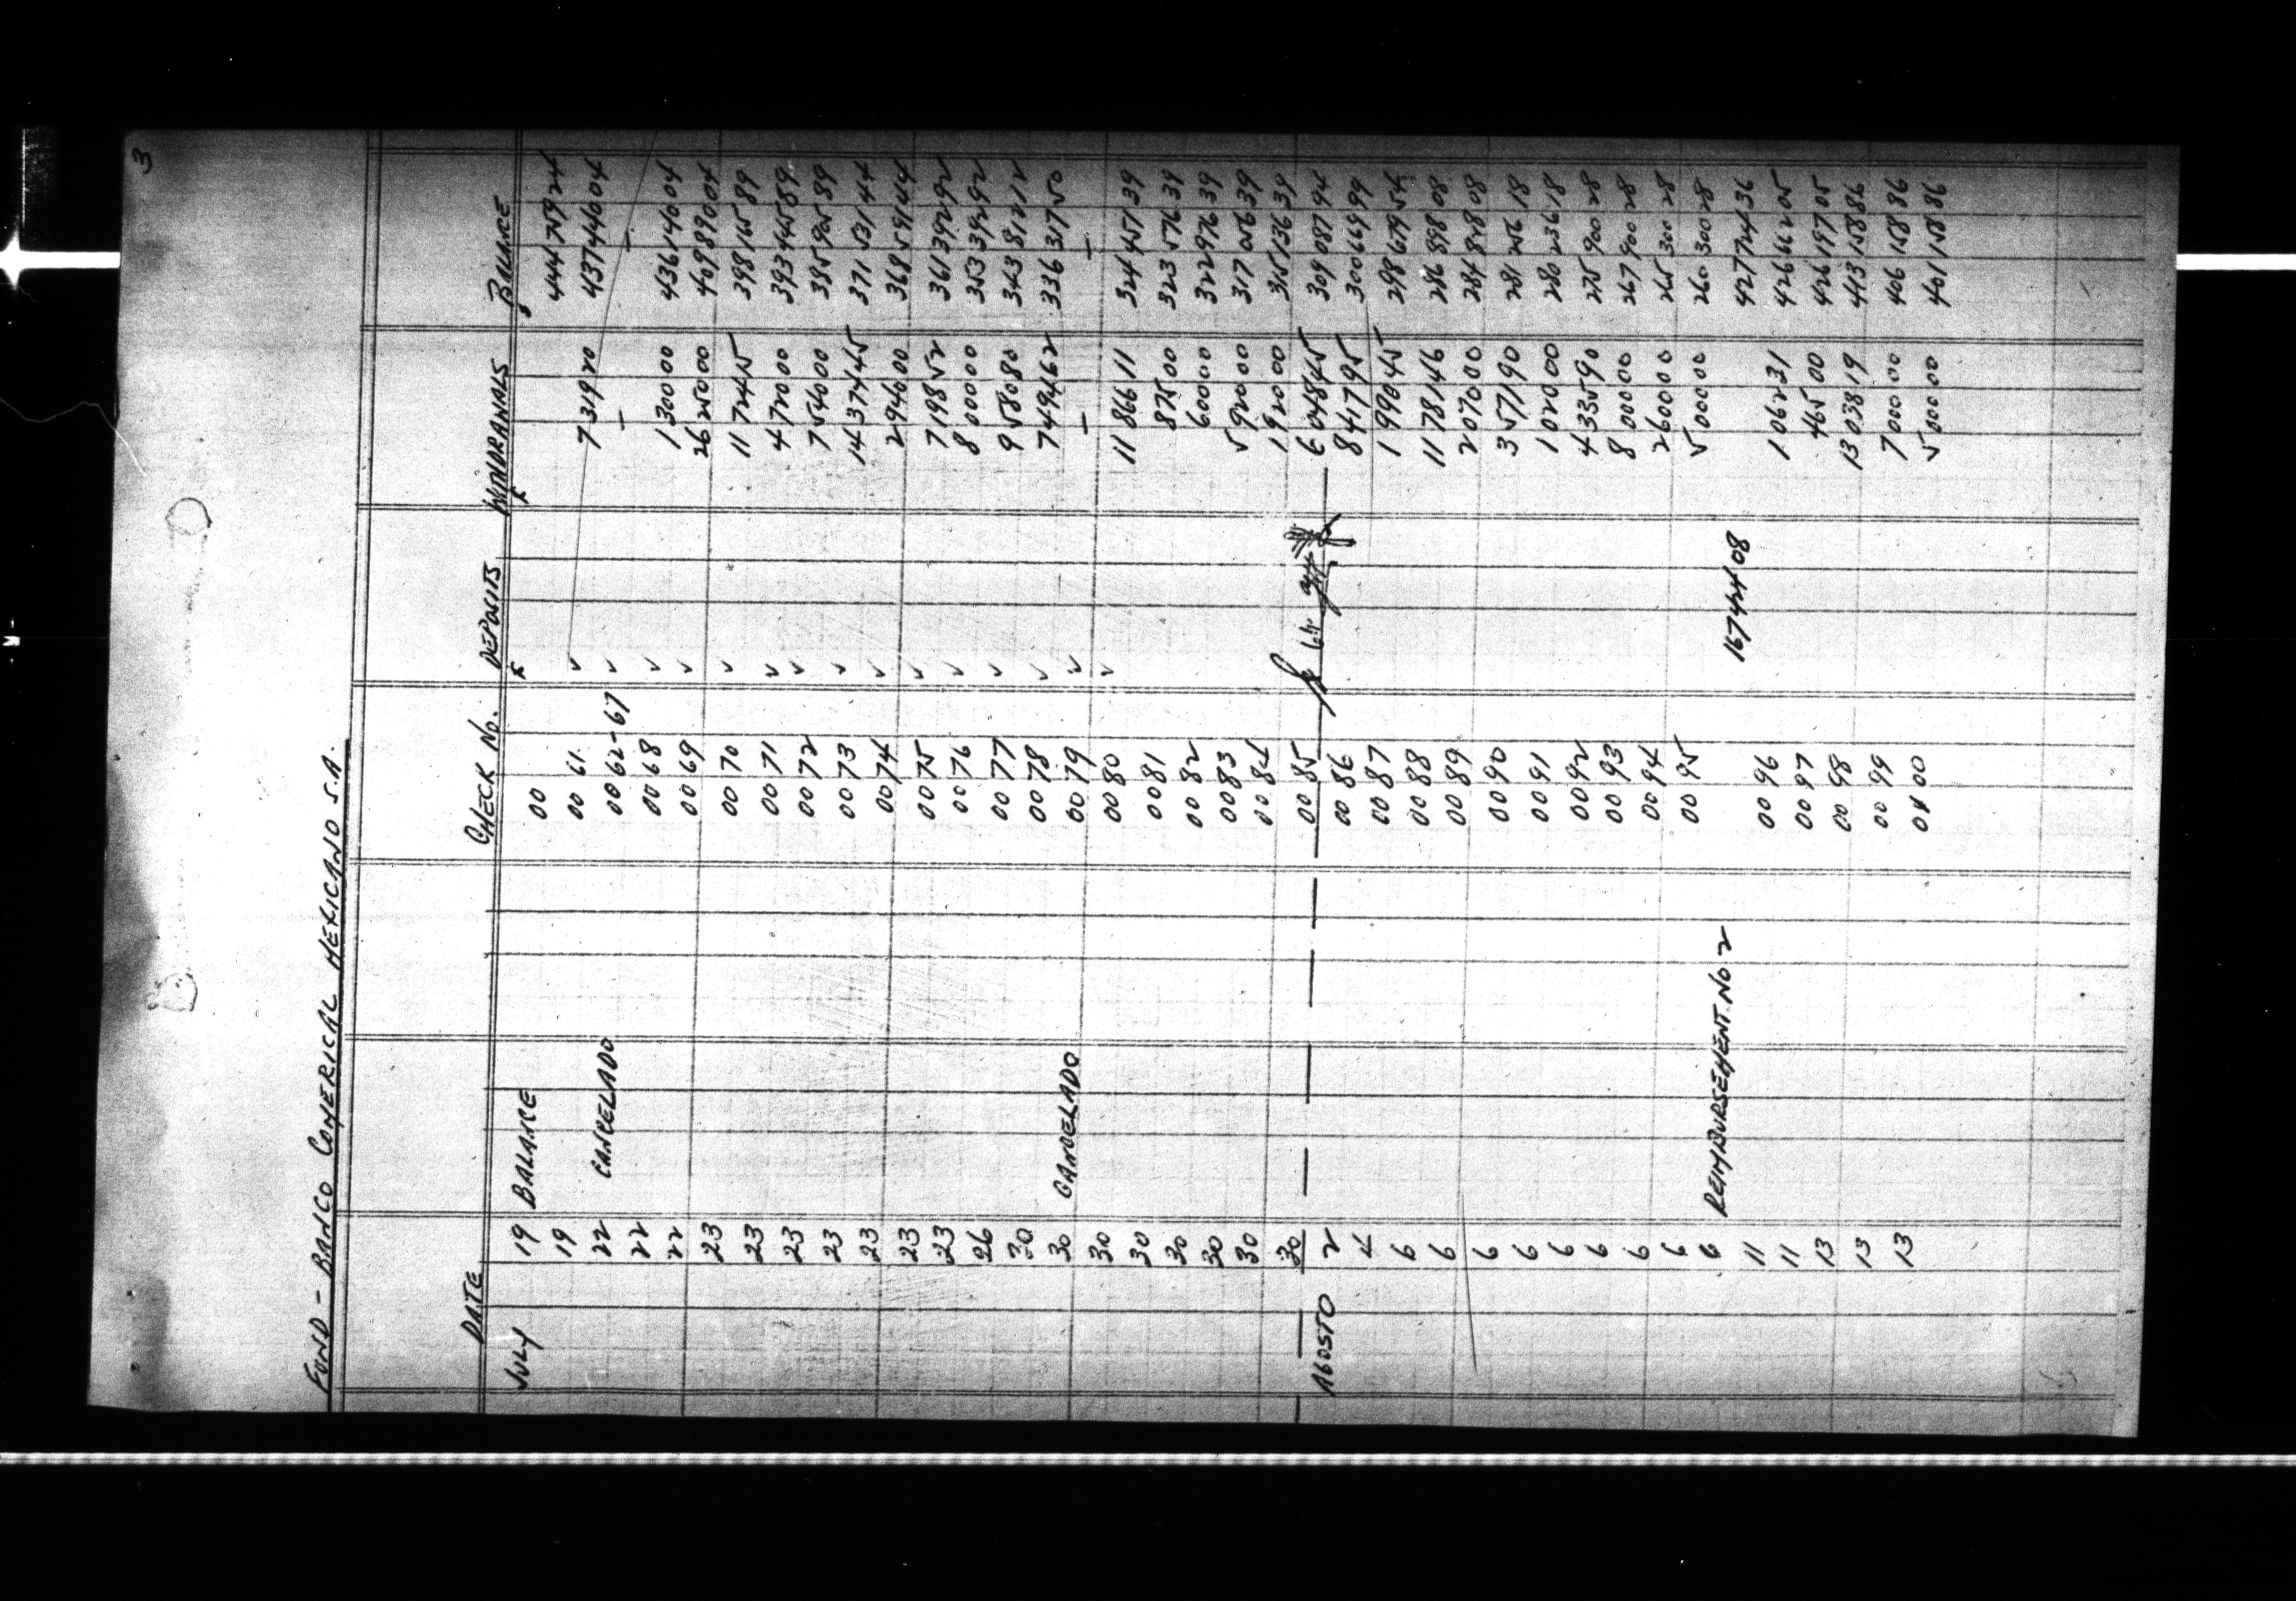 3
FUND - BANCO COMERICAL MEXICANO S.A.
DATE CHECK No. DEPOSITS WITHDRAWALS BALANCE
JULY 19 BALANCE 00 444 759 24
19 00 61 ✓ 7 319 20 437 440 04
22 CANCELADO 00 62-67 ✓ — —
22 00 68 ✓ 1 300 00 436 140 04
22 00 69 ✓ 26 250 00 409 890 04
23 00 70 ✓ 11 724 15 398 165 89
23 00 71 ✓ 4 720 00 393 445 89
23 00 72 ✓ 7 540 00 385 905 89
23 00 73 ✓ 14 374 45 371 531 44
23 00 74 ✓ 2 940 00 368 591 44
23 00 75 ✓ 7 198 52 361 392 92
23 00 76 ✓ 8 000 00 353 392 92
26 00 77 ✓ 9 580 80 343 812 12
30 00 78 ✓ 7 494 62 336 317 50
30 CANCELADO 00 79 ✓ — —
30 00 80 ✓ 11 866 11 324 451 39
30 00 81 875 00 323 576 39
30 00 82 600 00 322 976 39
30 00 83 5 920 00 317 056 39
30 00 84 1 920 00 315 136 39
30 00 85 6 048 45 309 087 94
AGOSTO 2 00 86 8 417 95 300 669 99
4 00 87 1 990 45 298 679 54
6 00 88 11 781 46 286 898 08
6 00 89 2 070 00 284 828 08
6 00 90 3 571 90 281 256 18
6 00 91 1 020 00 280 236 18
6 00 92 4 335 90 275 900 28
6 00 93 8 000 00 267 900 28
6 00 94 2 600 00 265 300 28
6 00 95 5 000 00 260 300 28
6 REIMBURSEMENT No 2 167 424 08 427 724 36
11 00 96 1 062 31 426 662 05
11 00 97 465 00 426 197 05
13 00 98 13 038 19 413 158 86
13 00 99 7 000 00 406 158 86
13 01 00 5 000 00 401 158 86